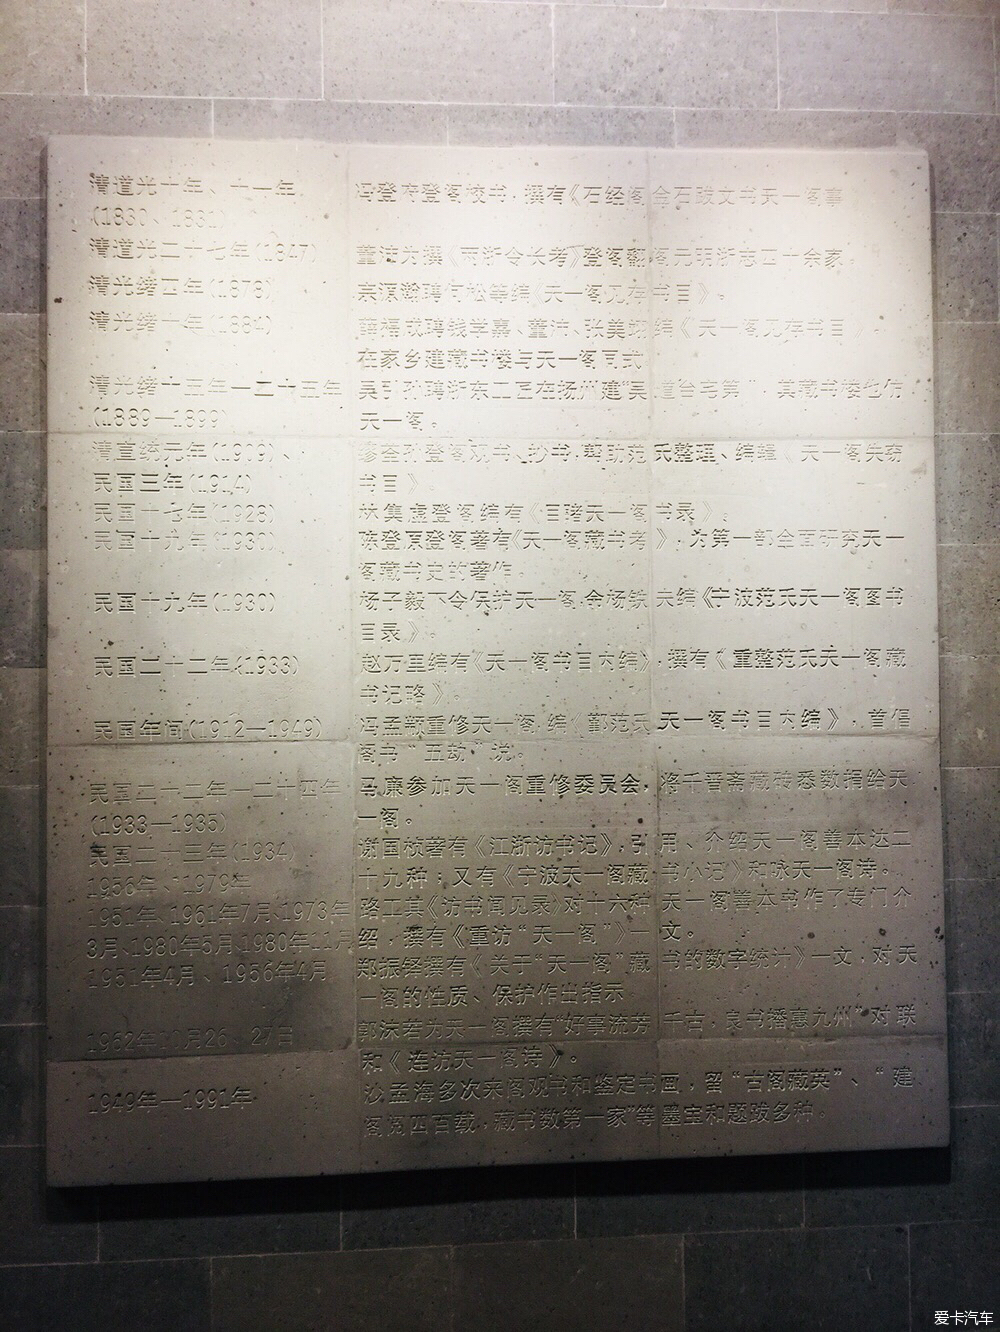 清道光十年、十一年 冯登府登阁校书，撰有《石经阁金石跋文书天一阁事
(1830、1831)
清道光二十七年(1847) 董沛为撰《两浙令长考》登阁翻阁元明浙志四十余家。
清光绪四年(1878) 宗源瀚聘何松等编《天一阁见存书目》。
清光绪十年(1884) 薛福成聘钱学嘉、董沛、张美翊编《天一阁见存书目》，
在家乡建藏书楼与天一阁同式
清光绪十五年—二十五年 吴引孙聘浙东工匠在扬州建“吴道台宅第”，其藏书楼也仿
(1889—1899) 天一阁。
清宣统元年(1909)、 缪荃孙登阁观书、抄书，帮助范氏整理、编辑《天一阁失窃
民国三年(1914) 书目》
民国十七年(1928) 林集虚登阁编有《目睹天一阁书录》。
民国十九年(1930) 陈登原登阁著有《天一阁藏书考》，为第一部全面研究天一
阁藏书史的著作。
民国十九年(1930) 杨子毅下令保护天一阁，命杨铁夫编《宁波范氏天一阁图书
目录》。
民国二十二年(1933) 赵万里编有《天一阁书目内编》，撰有《重整范氏天一阁藏
书记略》。
民国年间(1912—1949) 冯孟颛重修天一阁，编《鄞范氏天一阁书目内编》，首倡
阁书“五劫”说。
民国二十二年—二十四年 马廉参加天一阁重修委员会，将千晋斋藏砖悉数捐给天
(1933—1935) 一阁。
民国二十三年(1934) 谢国桢著有《江浙访书记》，引用、介绍天一阁善本达二
1956年、1979年 十九种；又有《宁波天一阁藏书小记》和咏天一阁诗。
1951年、1961年7月、1973年 路工其《访书闻见录》对十六种天一阁善本书作了专门介
3月、1980年5月、1980年11月 绍，撰有《重访“天一阁”》一文。
1951年4月、1956年4月 郑振铎撰有《关于“天一阁”藏书的数字统计》一文，对天
一阁的性质、保护作出指示
1962年10月26、27日 郭沫若为天一阁撰有“好事流芳千古，良书播惠九州”对联
和《连访天一阁诗》。
1949年—1991年 沙孟海多次来阁观书和鉴定书画，留“古阁藏英”、“建
阁阅四百载，藏书数第一家”等墨宝和题跋多种。
爱卡汽车